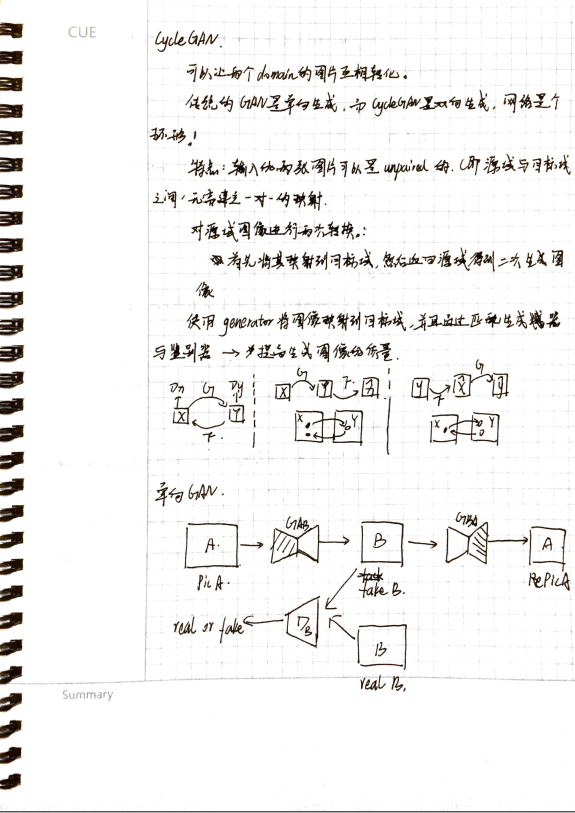 CUE
CycleGAN.
可以让两个domain的图片互相转化。
传统的GAN是单向生成，而CycleGAN是双向生成，网络是个
环形！
特点：输入的两张图片可以是unpaired的.（即源域与目标域
之间，无需建立一对一的映射.
对源域图像进行两次转换.：
首先将其映射到目标域，然后返回源域得到二次生成图
像
使用generator将图像映射到目标域，并且通过匹配生成器
与鉴别器 → 提高生成图像的质量.
G G
X Y F
F
X Y X Y
单向GAN.
GAB GBA
A B A
Pic A. fake B. RePicA
real or fake DB
B
real B.
Summary